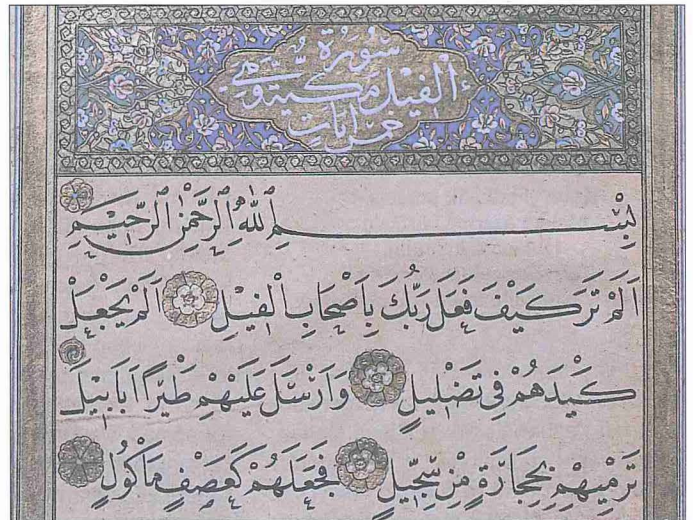 سُورَةُ
الْفِيلِ مَكِّيَّةٌ وَهِيَ
خَمْسُ آيَاتٍ
بِسْمِ اللّٰهِ الرَّحْمٰنِ الرَّحِيمِ
اَلَمْ تَرَ كَيْفَ فَعَلَ رَبُّكَ بِاَصْحَابِ الْفِيلِ اَلَمْ يَجْعَلْ
كَيْدَهُمْ فِى تَضْلِيلٍ وَاَرْسَلَ عَلَيْهِمْ طَيْرًا اَبَابِيلَ
تَرْمِيهِمْ بِحِجَارَةٍ مِنْ سِجِّيلٍ فَجَعَلَهُمْ كَعَصْفٍ مَأْكُولٍ